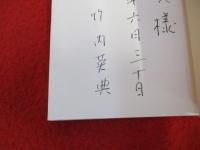 様
六月三十日
竹内英典